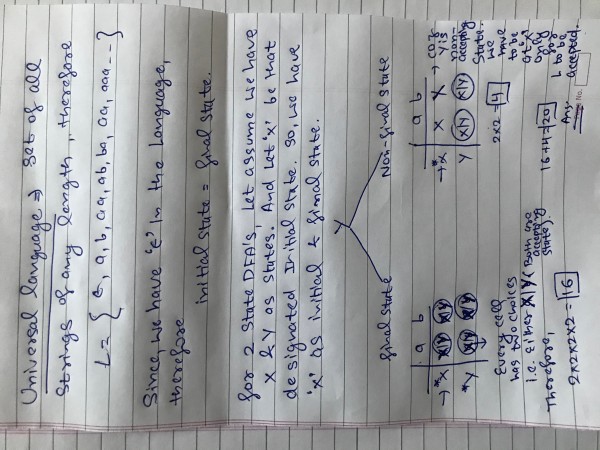 Universal language ⇒ Set of all
strings of any length, therefore
L = { ε, a, b, aa, ab, ba, aa, aaa -- }
Since, we have 'ε' in the language,
therefore
initial state = final state.
for 2 state DFA's, let assume we have
X & Y as states. And let 'x' be that
designated Initial state. So, we have
'x' as initial & final state.
Y
final state
a b
→*X X|Y X|Y
*Y X|Y X|Y
Every cell
has two choices
i.e. either X|Y (Both are
accepting
state).
Therefore,
2x2x2x2 = 16
Non-final state
a b
→*X X X → coz
Y X|Y X|Y
Y is
non-
accepting
state.
we
have
to be
at 'x'
only
for
L to be
accepted.
2x2 = 4
16+4 = 20
Ans.
No.